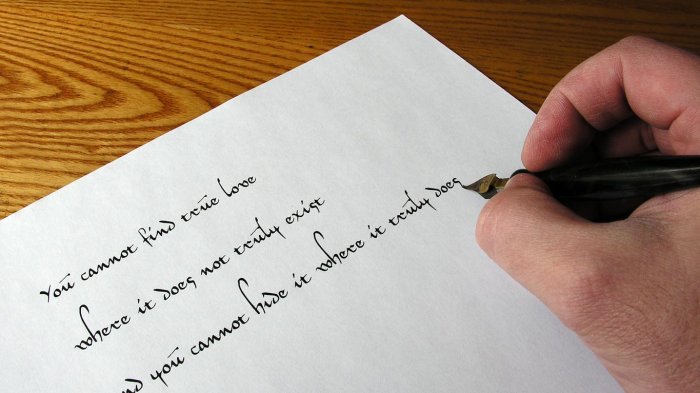 You cannot find true love
where it does not truly exist
nd you cannot hide it where it truly does